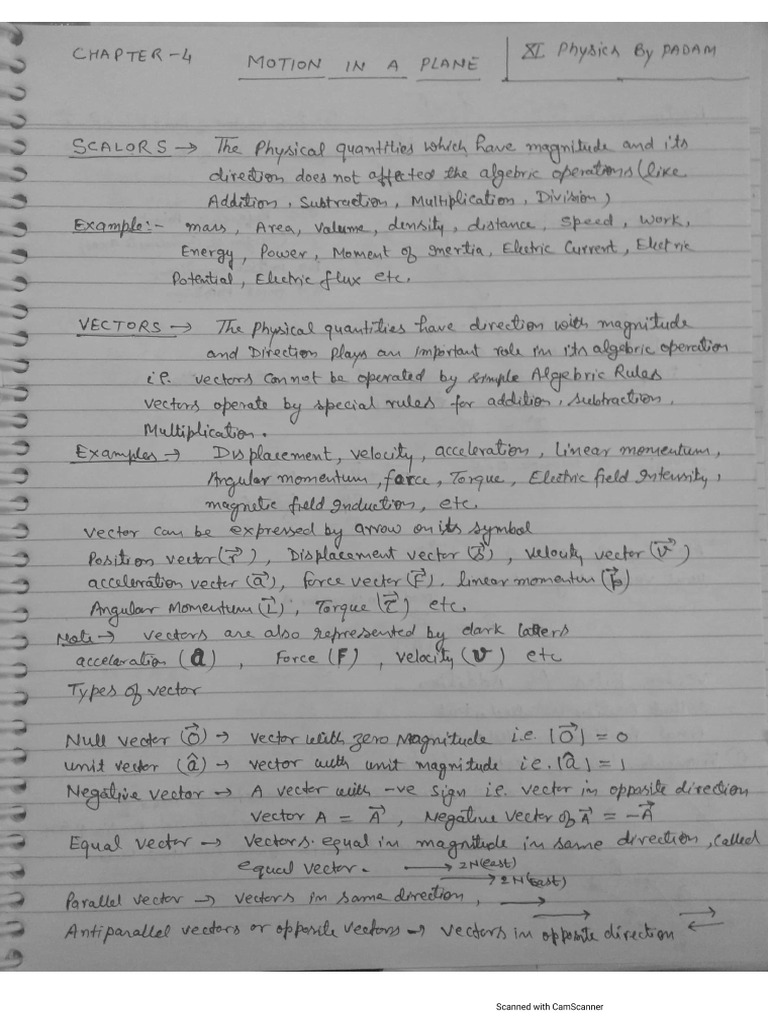 CHAPTER-4 MOTION IN A PLANE XI Physics By PADAM
SCALORS → The Physical quantities which have magnitude and its
direction does not affected the algebric operations (like
Addition, Substraction, Multiplication, Division)
Example:- mass, Area, Volume, density, distance, speed, work,
Energy, Power, Moment of Inertia, Electric Current, Electric
Potential, Electric flux etc.
VECTORS → The Physical quantities have direction with magnitude
and Direction Plays an important role in its algebric operation
i.e. vectors cannot be operated by simple Algebric Rules
vectors operate by special rules for addition, subtraction,
Multiplication.
Examples → Displacement, velocity, acceleration, linear momentum,
Angular momentum, force, Torque, Electric field Intensity,
magnetic field Induction, etc.
vector can be expressed by arrow on its symbol
Position vector (r⃗), Displacement vector (s⃗), velocity vector (v⃗)
acceleration vector (a⃗), force vector (F⃗), linear momentum (p⃗)
Angular Momentum (L⃗), Torque (τ⃗) etc.
Note → vectors are also represented by dark latters
acceleration (a), Force (F), velocity (v) etc
Types of vector
Null vector (0⃗) → vector with zero Magnitude i.e. |0⃗| = 0
unit vector (â) → vector with unit magnitude i.e. |â| = 1
Negative vector → A vector with -ve sign i.e. vector in opposite direction
vector A = A⃗, Negative vector of A⃗ = -A⃗
Equal vector → vectors equal in magnitude in same direction, called
equal vector. → 2N(east)
→ 2N(east)
Parallel vector → vectors in same direction, →
→
Antiparallel vectors or opposite vectors → vectors in opposite direction → ←
Scanned with CamScanner